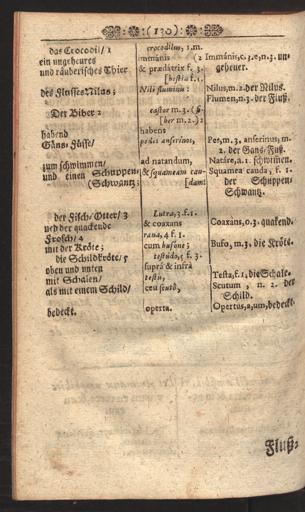 :(130):
das Crocodil/ 1
ein ungeheures
und räuberisches Thier
des Flusses Nilus;
Der Biber 2
habend
Gäns-Füsse/
zum schwimmen/
und einen Schuppen-
(Schwantz;
der Fisch-Otter/ 3
und der quackende
Frosch/ 4
mit der Kröte;
die Schildkröte/ 5
oben und unten
mit Schalen/
als mit einem Schild/
bedeckt.
crocodilus, 1. m.
immanis (2
& prædatrix f. 3.
[bestia f. 1.
Nili fluminis:
castor m. 3. (fi-
[ber m. 2.) 2
habens
pedes anserinos,
ad natandum,
& squameam cau-
[dam:
Lutra, 3. f. 1.
& coaxans
rana, 4 f. 1.
cum bufone;
testudo, 5 f. 3.
suprà & infrà
testis,
ceu scuto,
operta.
Immânis, c. 3. e, n. 3. un-
geheuer.
Nilus, m. 2. der Nilus.
Flumen, n. 3. der Fluß.
Pes, m. 3. anserinus, m.
2. der Gans-Fuß.
Natáre, a. 1. schwimen.
Squamea cauda, f. 1.
der Schuppen-
Schwantz.
Coaxans, o. 3. quakend.
Bufo, m. 3. die Kröte.
Testa, f. 1. die Schale.
Scutum, n. 2. der
Schild.
Opertus, a, um, bedeckt.
Fluß-